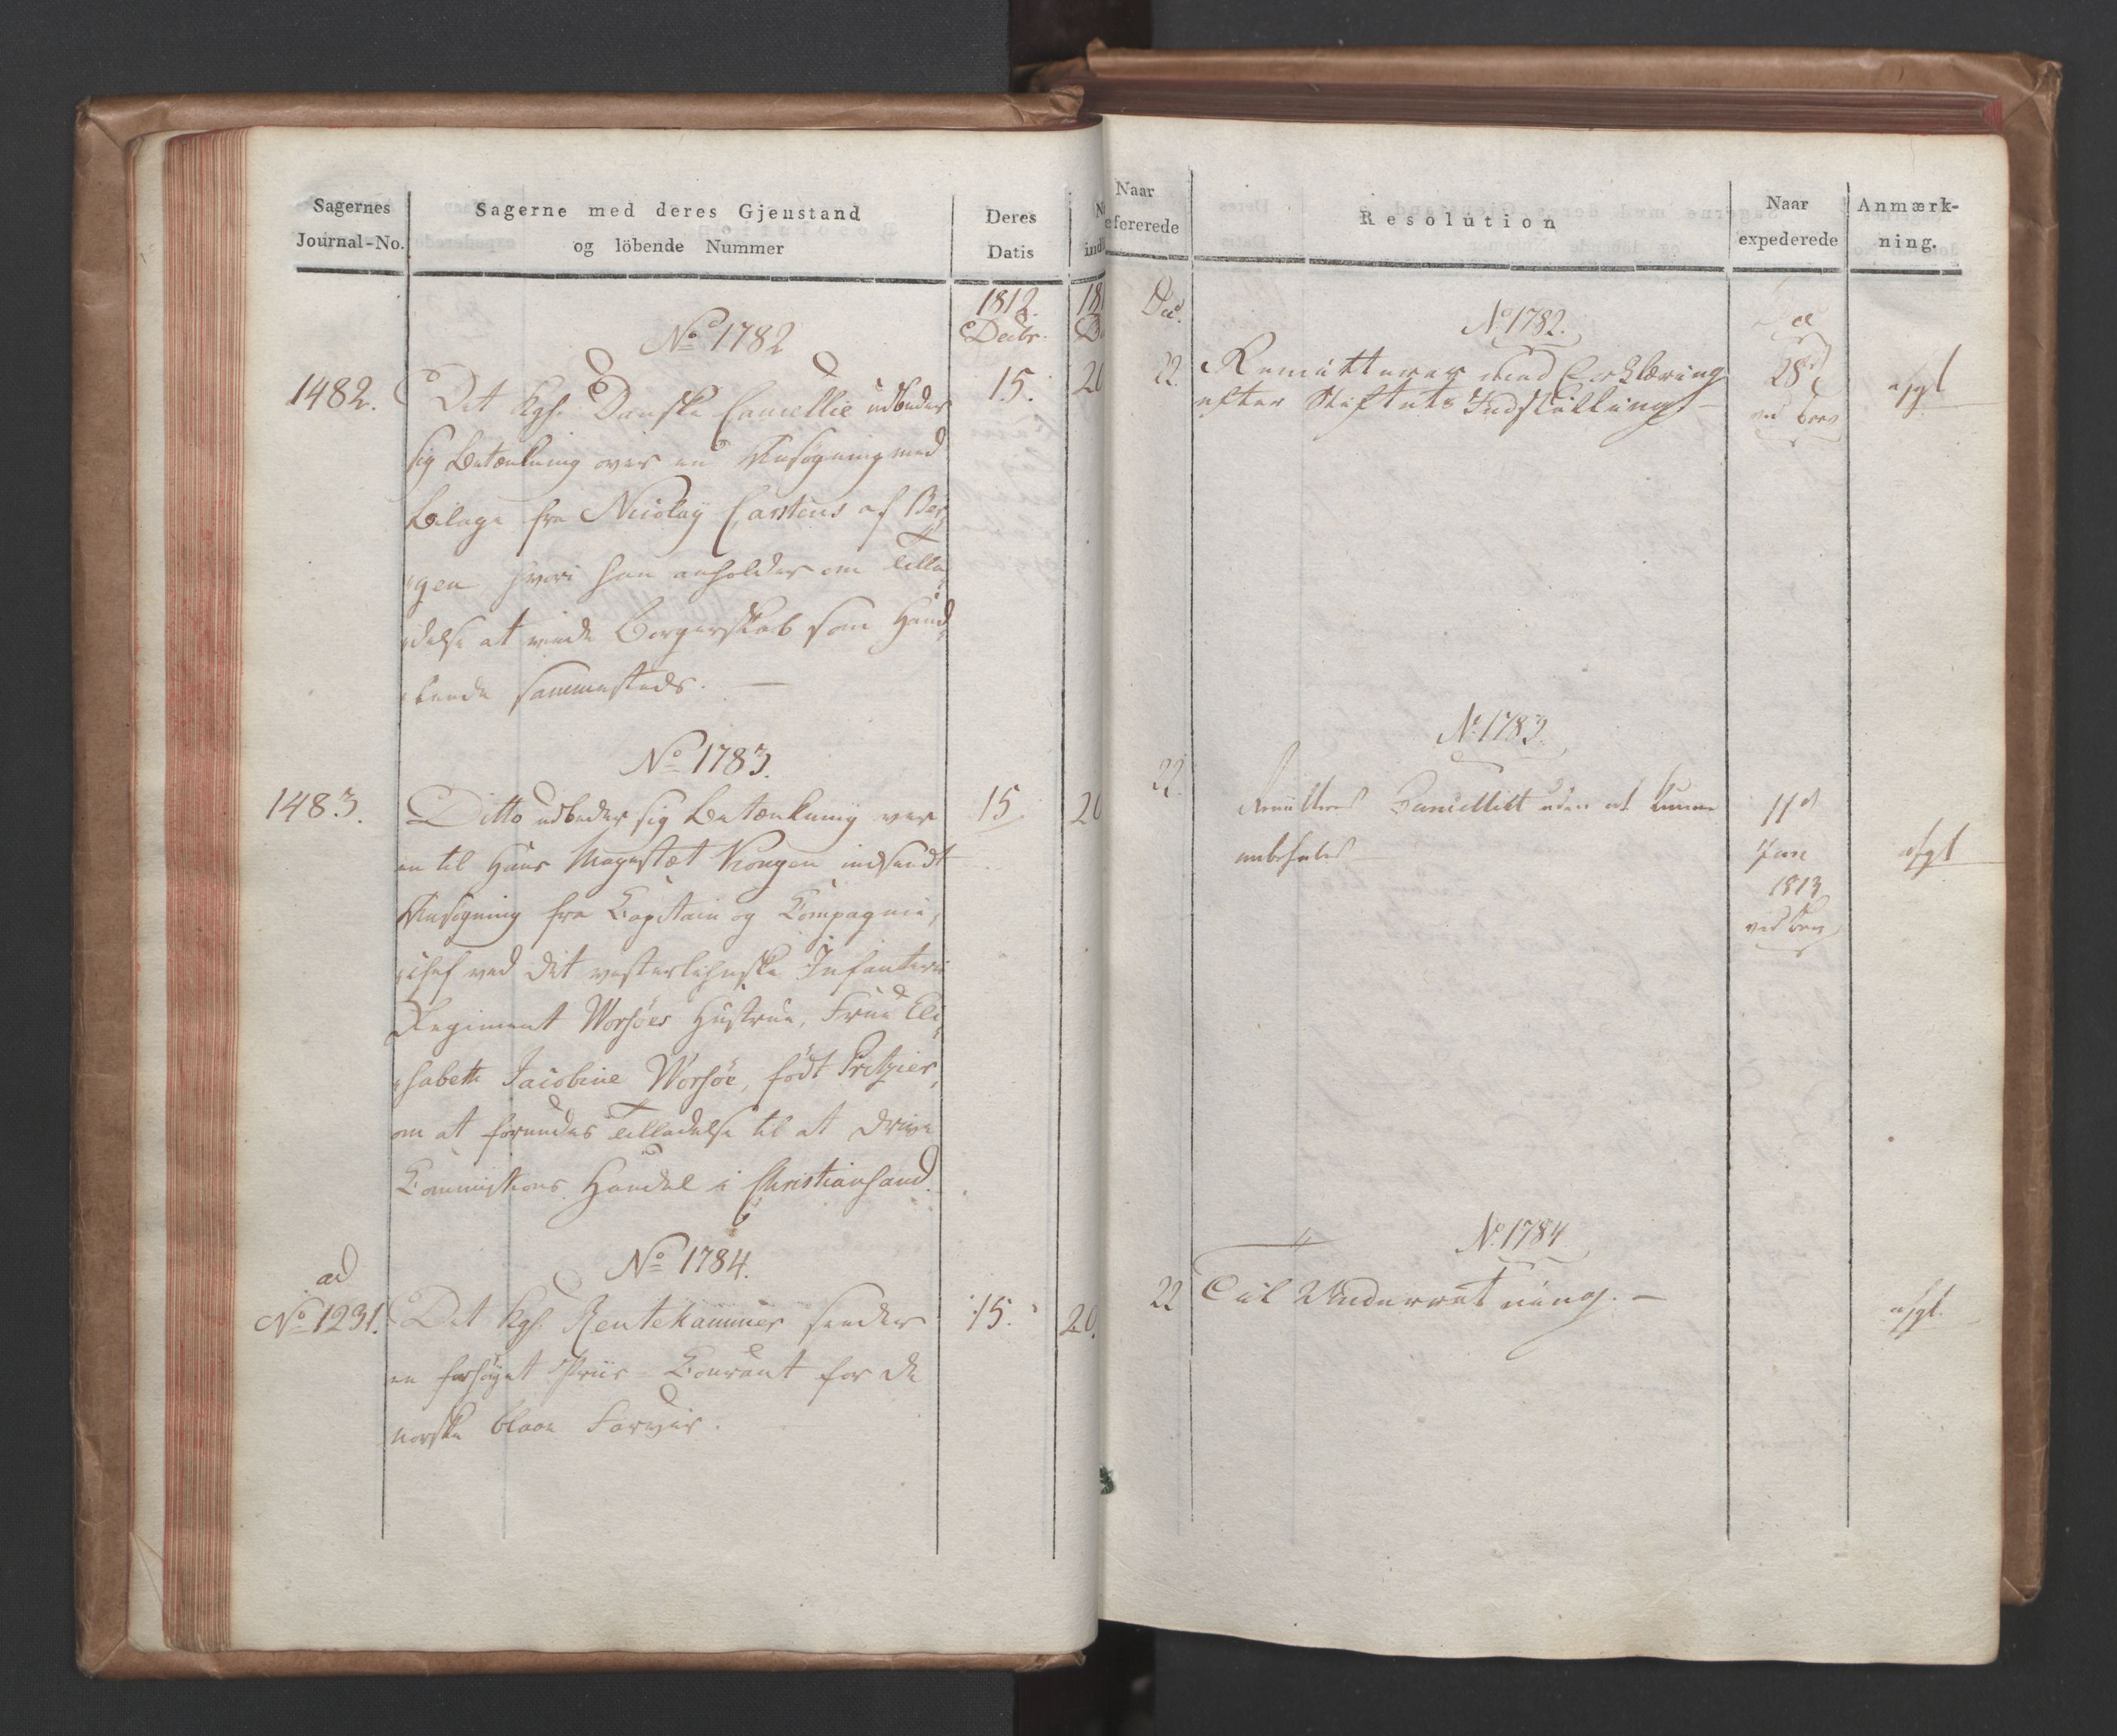 Sagernes
Journal-No.
Sagerne med deres Gjenstand
og löbende Nummer
Deres
Datis
1812.
Decbr.
No 1782
1482.
Det Kgl. Danske Cancellie udbeder
sig Betænkning over en Ansøgning med
Bilage fra Nicolay Carstens af Ber,
,gen hvori han anholder om Tilla,
,delse at vinde Borgerskab som Hand,
,lende sammesteds. —
15.
20
No 1783.
1483.
Ditto udbeder sig Betænkning over
en til Hans Majestæt Kongen indsendt
Ansögning fra Capitain og Compagnie,
,chef ved det vesterlehnske Infanterie
Regiment Worsöes Hustrue, Frue Eli,
,sabeth Jacobine Worsöe, födt Pritzier,
om at forundes Tilladelse til at drive
Commissions Handel i Christiansand.
15.
20
No 1784.
ad
No 1231.
Det Kgl. Rentekammer sender
en forhöyet Priis-Courant for de
norske blaae Farver.
15.
20.
Naar
refererede
Resolution
Naar
expederede
Anmærk-
ning.
Dec.
No 1782.
22.
Remitteres med Erklæring
efter Stiftets Indstilling. —
28
ved Brev
afgl
No 1783.
22.
Remitteres Cancelliet uden at kunne
anbefales
11
Jan
1813
ved Brev
afgl
No 1784
22
Til Underretning. —
afgl.